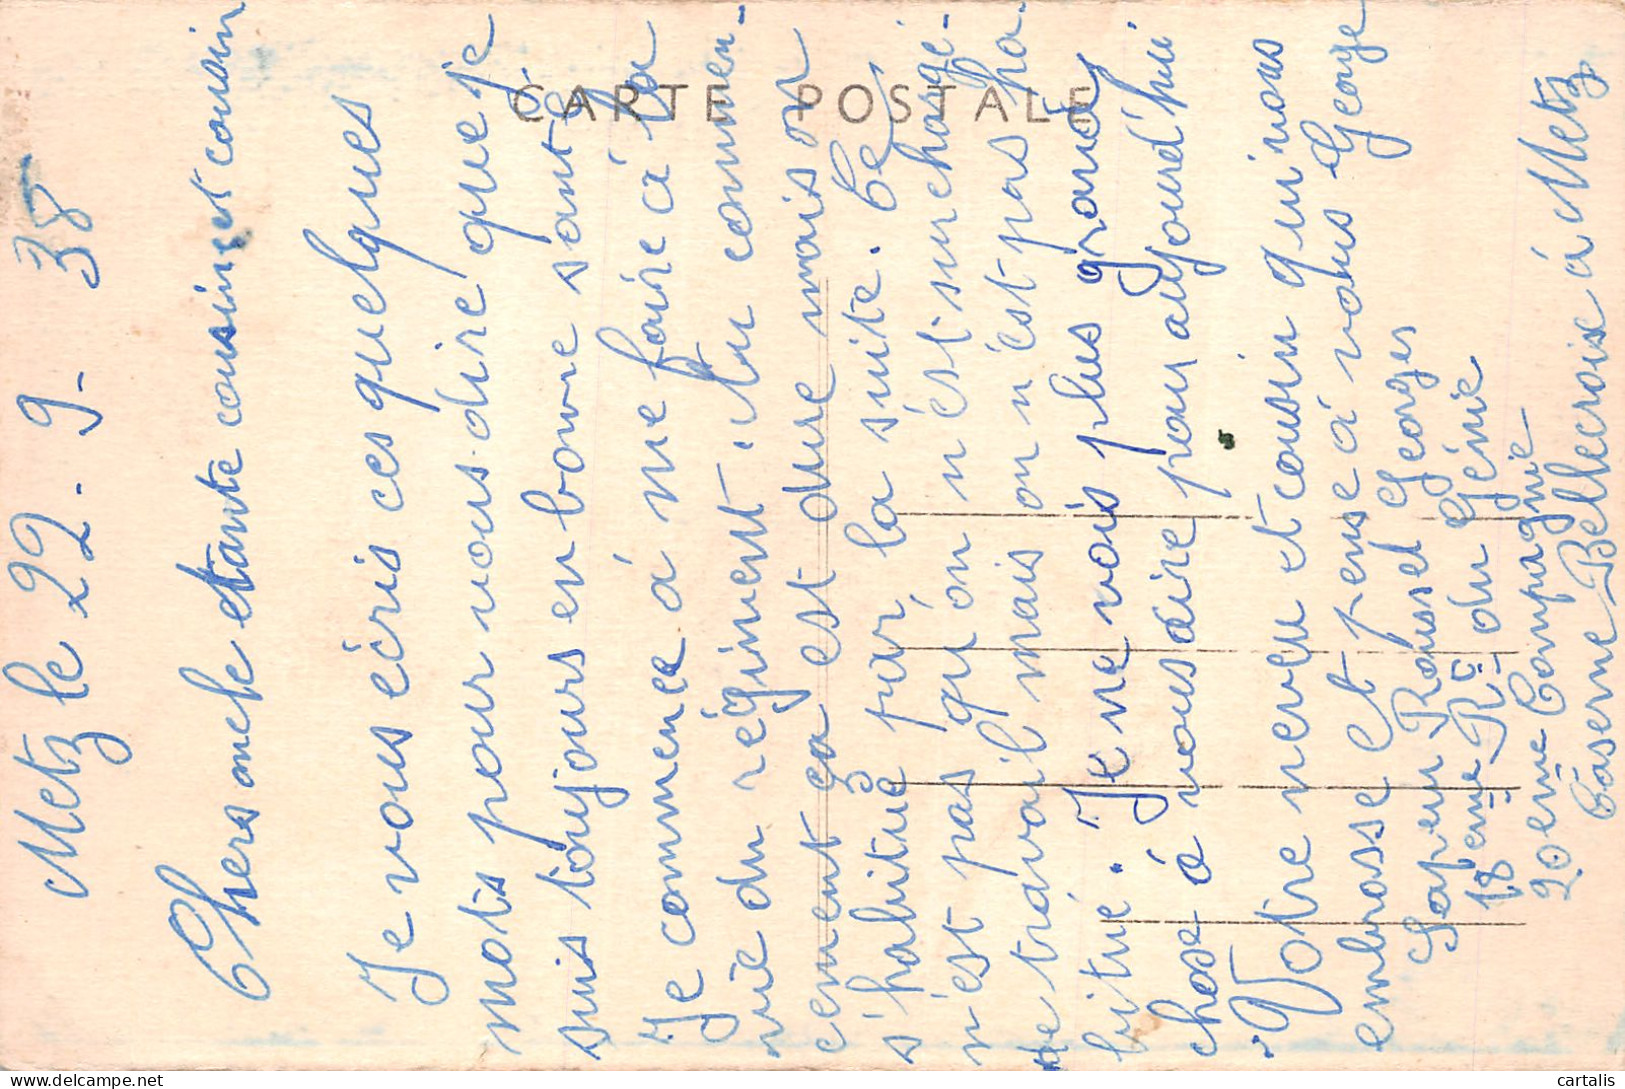 CARTE POSTALE
Metz le 22-9-38
Chers oncle et tante cousine et cousin
Je vous écris ces quelques
mots pour vous dire que je
suis toujours en bonne santé
Je commence à me faire à la
vie du régiment. Au commen-
cement ça est dure mais on
s'habitue par la suite. Ce
n'est pas qu'on n'est surchargé
de travail mais on n'est pas ha-
bitué. Je ne vois plus grand
chose à vous dire pour aujourd'hui
Votre neveu et cousin qui vous
embrasse et pense à vous George
Sapeur Roussel Georges
18ème Rt du Génie
20eme Compagnie
Caserne Bellecroix à Metz
cartalis